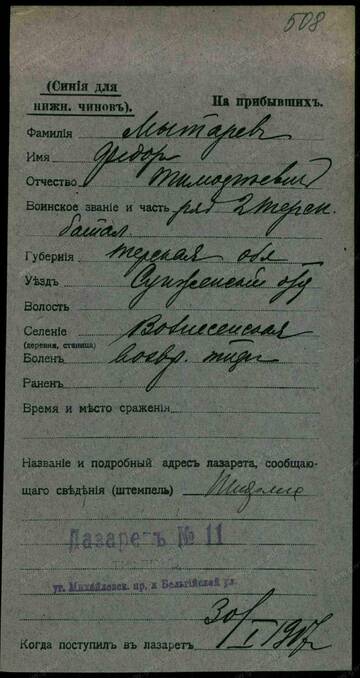 508
(Синія для
нижн. чиновъ).
На прибывшихъ.
Фамилія Мытаревъ
Имя Федор
Отчество Тимофѣевич
Воинское званіе и часть ряд 2 терск.
батал.
Губернія Терская обл
Уѣздъ Сунженскій отд
Волость
Селеніе Вознесенская
(деревня, станица)
Боленъ возвр. тиф
Раненъ
Время и мѣсто сраженія
Названіе и подробный адресъ лазарета, сообщаю-
щаго свѣдѣнія (штемпель) Тифлис
Лазаретъ № 11
уг. Михайловск. пр. и Бельгійской ул.
30/I 1917
Когда поступилъ въ лазаретъ